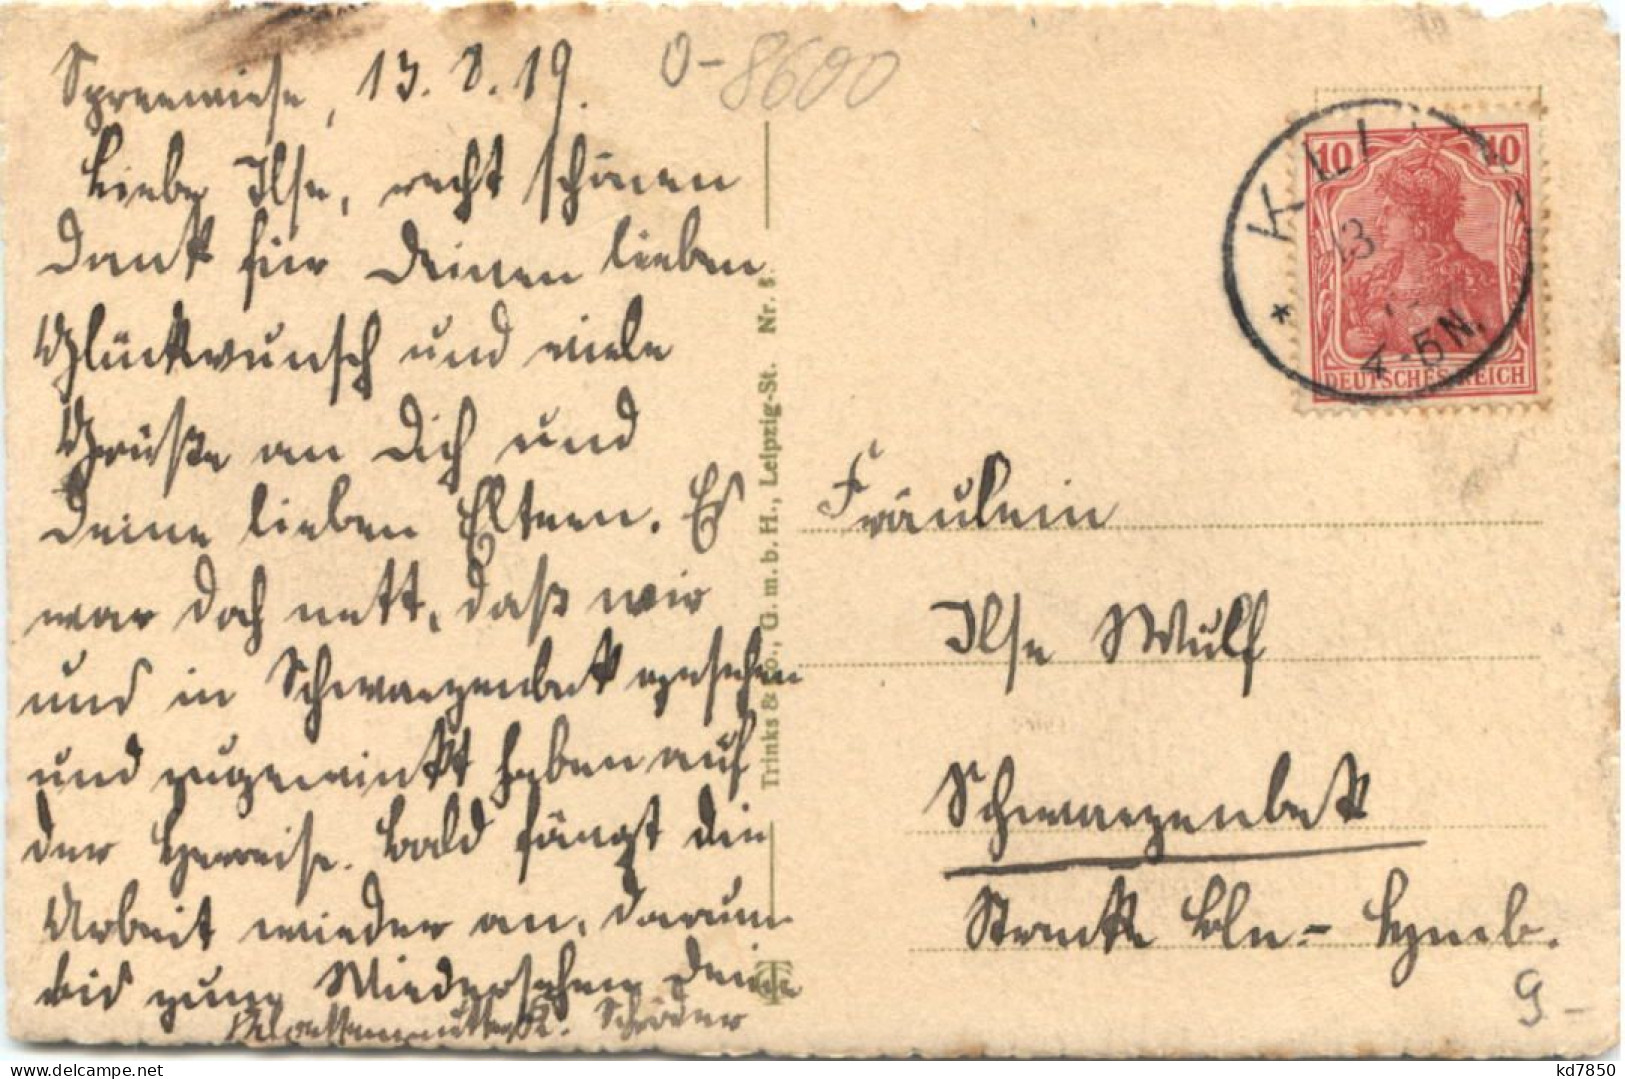 Spreewiese, 13. 8. 19.
Liebe Ilse, recht schönen
Dank für Deinen lieben
Glückwunsch und viele
Grüße an Dich und
Deine lieben Eltern. Es
war doch nett, daß wir
uns in Schwarzenbek gesehen
und zugewinkt haben auf
der Herreise. Bald fängt die
Arbeit wieder an, darum
bis zum Wiedersehen Deine
Schröder
0-8600
Trinks & Co., G. m. b. H., Leipzig-St. Nr. 5.
10 10
DEUTSCHES REICH
* KLI
13
4-5N.
Fräulein
Ilse Wulf
Schwarzenbek
Strecke Bln.-
9-
kd7850